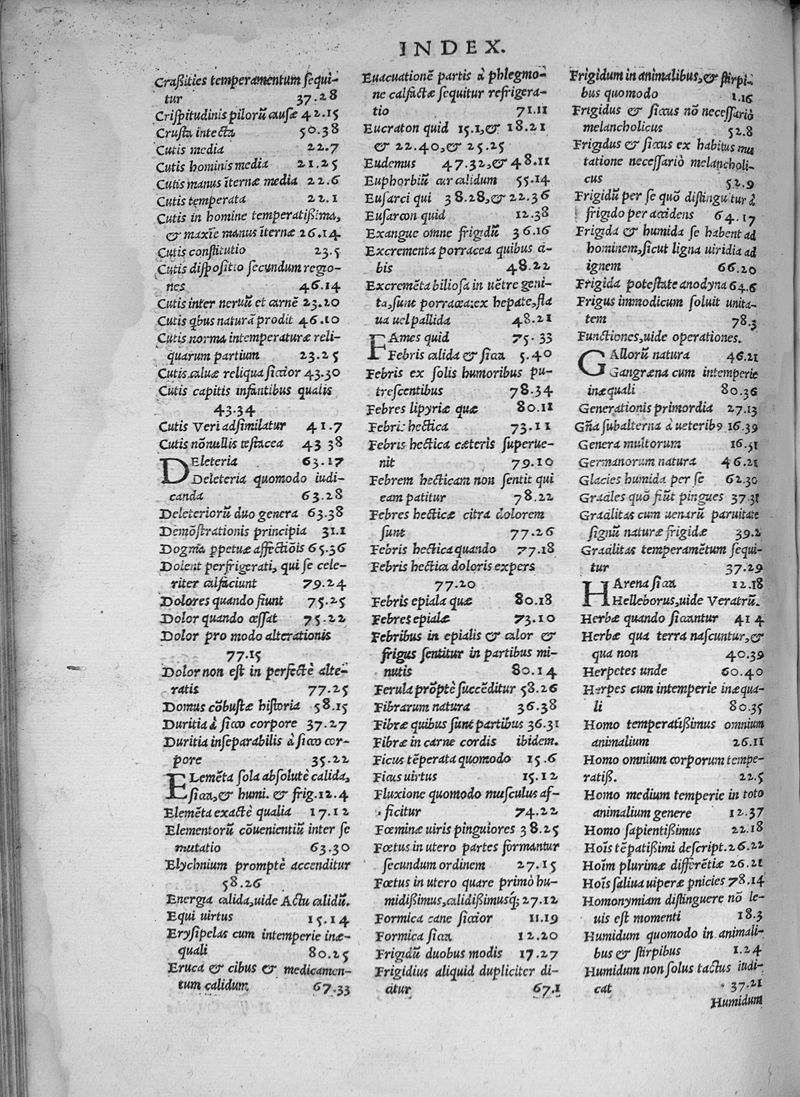 INDEX.
Craßities temperamentum sequi-
tur 37.28
Crispitudinis pilorũ causæ 42.15
Crusta intecta 50.38
Cutis media 22.7
Cutis hominis media 21.25
Cutis manus iternæ media 22.6
Cutis temperata 22.1
Cutis in homine temperatißima,
& maxĩe manus ĩternæ 26.14
Cutis constitutio 23.5
Cutis dispositio secundum regio-
nes 46.14
Cutis inter neruũ et carnẽ 23.20
Cutis qbus naturã prodit 46.10
Cutis norma intemperaturæ reli-
quarum partium 23.25
Cutis caluæ reliqua siccior 43.30
Cutis capitis infantibus qualis
43.34
Cutis Veri adsimilatur 41.7
Cutis nõnullis testacea 43 38
DEleteria 63.17
Deleteria quomodo iudi-
canda 63.28
Deleteriorũ duo genera 63.38
Demõstrationis principia 31.1
Dogma ppetuæ affectiõis 65.36
Dolent perfrigerati, qui se cele-
riter calfaciunt 79.24
Dolores quando fiunt 75.25
Dolor quando cessat 75.22
Dolor pro modo alterationis
77.15
Dolor non est in perfectè alte-
ratis 77.25
Domus cõbustæ historia 58.15
Duritia à sicco corpore 37.27
Duritia inseparabilis à sicco cor-
pore 35.22
ELemẽta sola absolutè calida,
sicca, & humi. & frig. 12.4
Elemẽta exactè qualia 17.12
Elementorũ cõuenientiũ inter se
mutatio 63.30
Elychnium promptè accenditur
58.26
Energia calida, uide Actu calidũ.
Equi uirtus 15.14
Erysipelas cum intemperie inæ-
quali 80.25
Eruca & cibus & medicamen-
tum calidum. 67.33
Euacuationẽ partis à phlegmo-
ne calfactæ sequitur refrigera-
tio 71.11
Eucraton quid 15.1, & 18.21
& 22.40, & 25.25
Eudemus 47.32, & 48.11
Euphorbiũ cur calidum 55.14
Eusarci qui 38.28, & 22.36
Eusarcon quid 12.38
Exangue omne frigidũ 36.16
Excrementa porracea quibus ci-
bis 48.22
Excremẽta biliosa in uẽtre geni-
ta, sunt porracea: ex hepate, fla
ua uel pallida 48.21
FAmes quid 75. 33
Febris calida & sicca 5.40
Febris ex solis humoribus pu-
trescentibus 78.34
Febres lipyriæ quæ 80.11
Febris hectica 73.11
Febris hectica cæteris superue-
nit 79.10
Febrem hecticam non sentit qui
eam patitur 78.22
Febres hecticæ citra dolorem
sunt 77.26
Febris hectica quando 77.18
Febris hectica doloris expers
77.20
Febris epiala quæ 80.18
Febres epialæ 73.10
Febribus in epialis & calor &
frigus sentitur in partibus mi-
nutis 80.14
Ferula prõptè succẽditur 58.26
Fibrarum natura 36.38
Fibræ quibus sunt partibus 36.31
Fibræ in carne cordis ibidem.
Ficus tẽperata quomodo 15.6
Ficus uirtus 15.12
Fluxione quomodo musculus af-
ficitur 74.22
Fœminæ uiris pinguiores 38.25
Fœtus in utero partes formantur
secundum ordinem 27.15
Fœtus in utero quare primò hu-
midißimus, calidißimusq; 27.12
Formica cane siccior 11.19
Formica sicca 12.20
Frigidũ duobus modis 17.27
Frigidius aliquid dupliciter di-
citur 67.1
Frigidum in animalibus, & stirpi-
bus quomodo 1.16
Frigidus & siccus nõ necessariò
melancholicus 52.8
Frigidus & siccus ex habitus mu
tatione necessariò melancholi-
cus 52.9
Frigidũ per se quõ distinguitur à
frigido per accidens 64.17
Frigida & humida se habent ad
hominem, sicut ligna uiridia ad
ignem 66.20
Frigida potestate anodyna 64.6
Frigus immodicum soluit unita-
tem 78.3
Functiones, uide operationes.
GAllorũ natura 46.21
Gangræna cum intemperie
inæquali 80.36
Generationis primordia 27.13
Gñа subalterna à ueteribꝰ 16.39
Genera multorum 16.31
Germanorum natura 46.21
Glacies humida per se 62.30
Graciles quõ fiũt pingues 37.31
Gracilitas cum uenarũ paruitate
signũ naturæ frigidæ 39.2
Gracilitas temperamẽtum sequi-
tur 37.29
HArena sicca 12.18
Helleborus, uide Veratrũ.
Herbæ quando siccantur 41 4
Herbæ qua terra nascuntur, &
qua non 40.39
Herpetes unde 60.40
Herpes cum intemperie inæqua-
li 80.35
Homo temperatißimus omnium
animalium 26.11
Homo omnium corporum tempe-
ratiß. 22.5
Homo medium temperie in toto
animalium genere 12.37
Homo sapientißimus 22.18
Hoĩs tẽpatißimi descript. 26.22
Hoĩm plurimæ differẽtiæ 26.21
Hoĩs saliua uiperæ pnicies 78.14
Homonymiam distinguere nõ le-
uis est momenti 18.3
Humidum quomodo in animali-
bus & stirpibus 1.24
Humidum non solus tactus iudi-
cat 37.21
Humidum